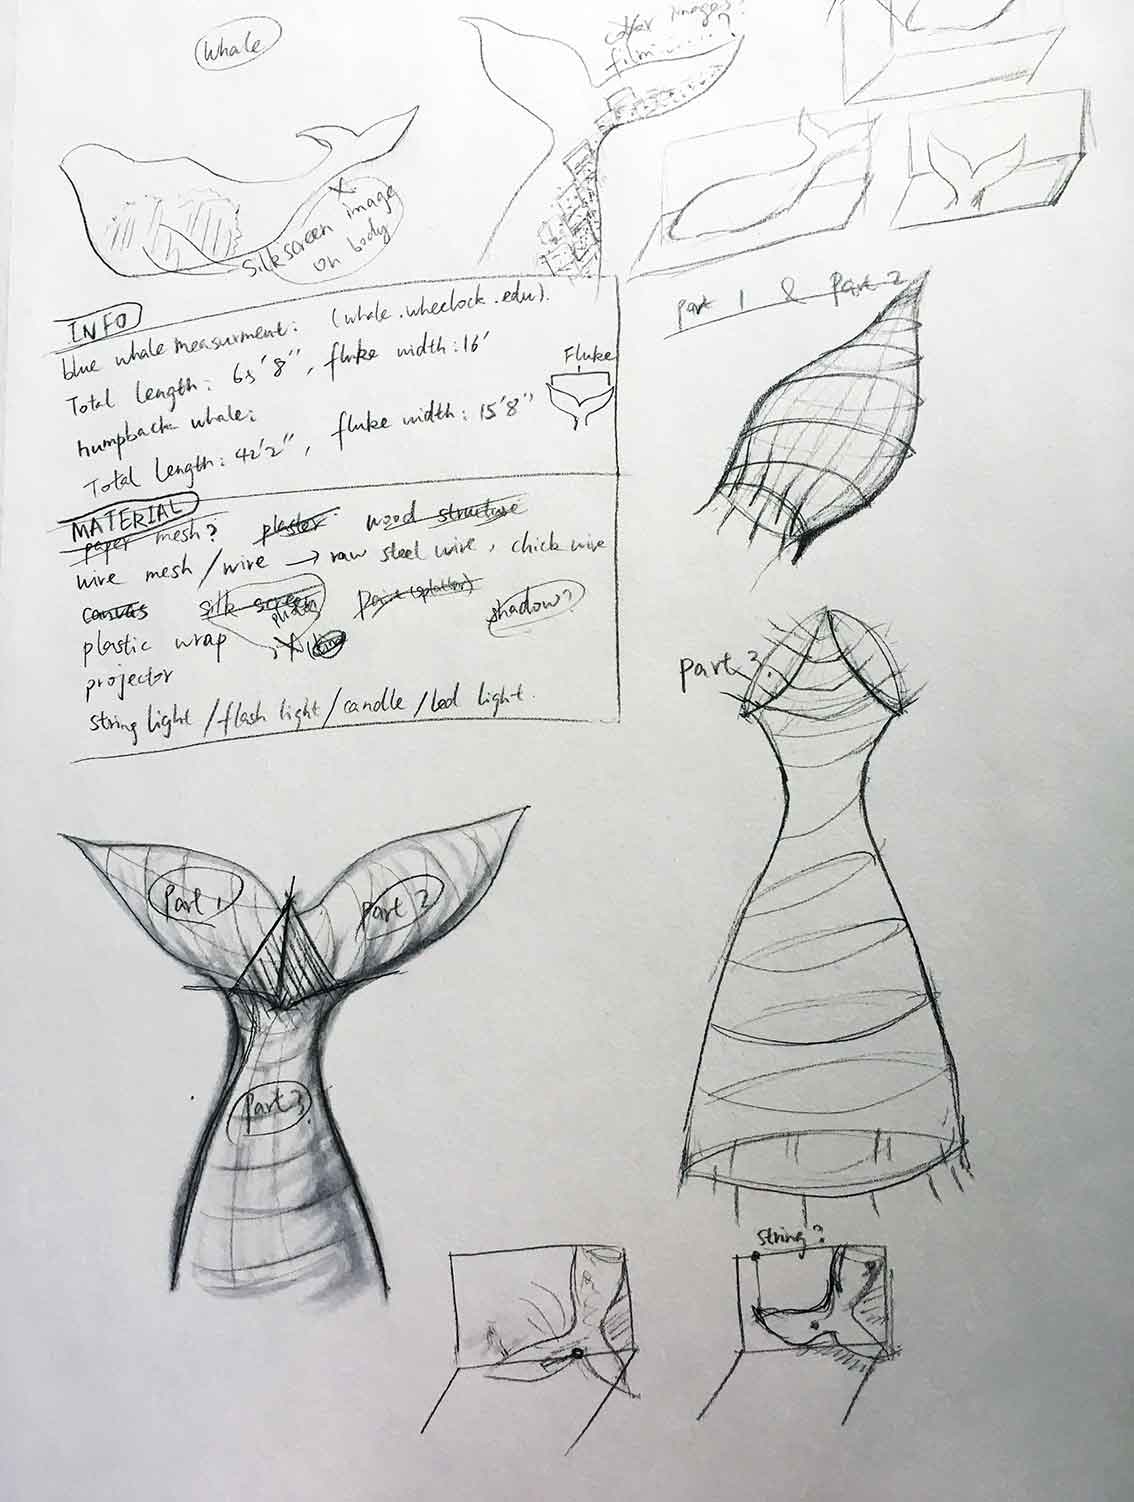 whale
other images?
film......?
silkscreen image
on body
INFO
blue whale measurment: (whale.wheelock.edu).
Total length: 65'8", fluke width: 16'
humpback whale:
Total length: 42'2", fluke width: 15'8"
Fluke
MATERIAL
paper mesh? plaster wood structure
wire mesh/wire → raw steel wire, chick wire
canvas silk screen paint (splatter) shadow?
plastic wrap
projector
string light/flash light/candle/led light.
part 1 & part 2
part 3
part 1
part 2
part 3
string?